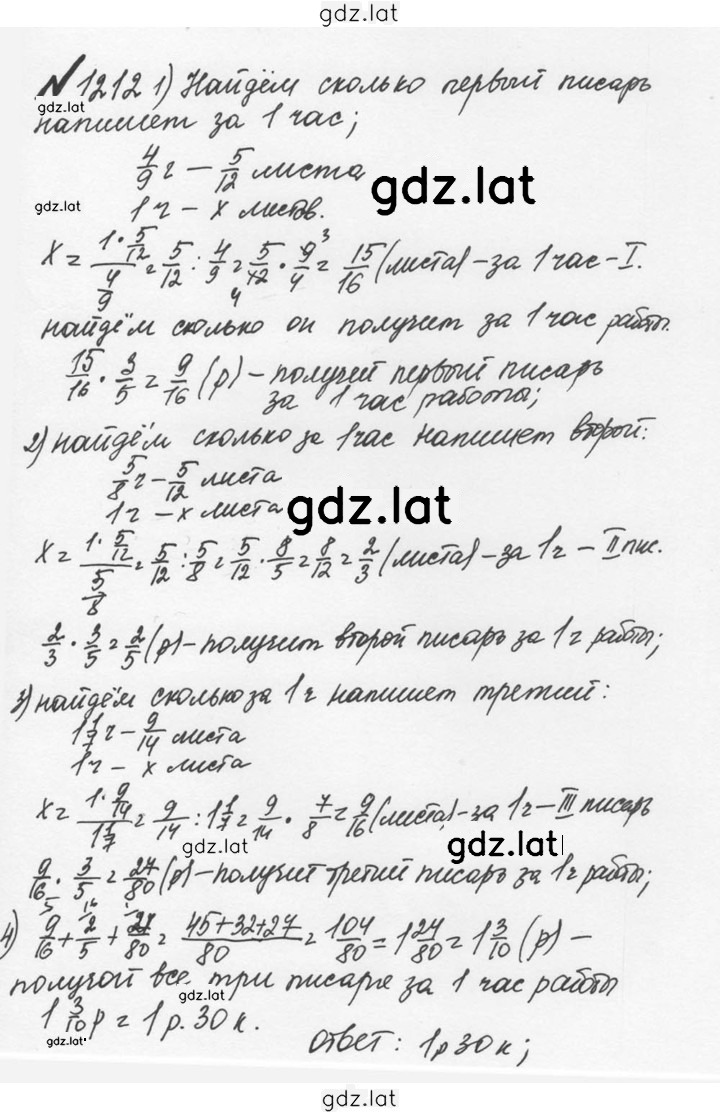 gdz.lat
№ 1212 1) Найдём сколько первый писарь
gdz.lat
напишет за 1 час;
4/9 ч — 5/12 листа
gdz.lat
gdz.lat
1 ч — x листов.
x = (1 · 5/12)/(4/9) = 5/12 : 4/9 = 5/12 · 9/4 = 15/16 (листа) - за 1 час - I.
найдём сколько он получит за 1 час работы.
15/16 · 3/5 = 9/16 (р) - получит первый писарь
за 1 час работы;
2) найдём сколько за 1 час напишет второй:
5/8 ч — 5/12 листа
gdz.lat
1 ч — x листа
x = (1 · 5/12)/(5/8) = 5/12 : 5/8 = 5/12 · 8/5 = 8/12 = 2/3 (листа) - за 1 ч - II пис.
2/3 · 3/5 = 2/5 (р) - получит второй писарь за 1 ч работы;
3) найдём сколько за 1 ч напишет третий:
1 1/7 ч — 9/14 листа
1 ч — x листа
x = (1 · 9/14)/(1 1/7) = 9/14 : 1 1/7 = 9/14 · 7/8 = 9/16 (листа) - за 1 ч - III писарь
gdz.lat
gdz.lat
9/16 · 3/5 = 27/80 (р) - получит третий писарь за 1 ч работы;
4) 9/16 + 2/5 + 27/80 = (45+32+27)/80 = 104/80 = 1 24/80 = 1 3/10 (р) -
получат все три писаря за 1 час работы
gdz.lat
1 3/10 р = 1 р. 30 к.
gdz.lat
ответ: 1 р 30 к;
gdz.lat